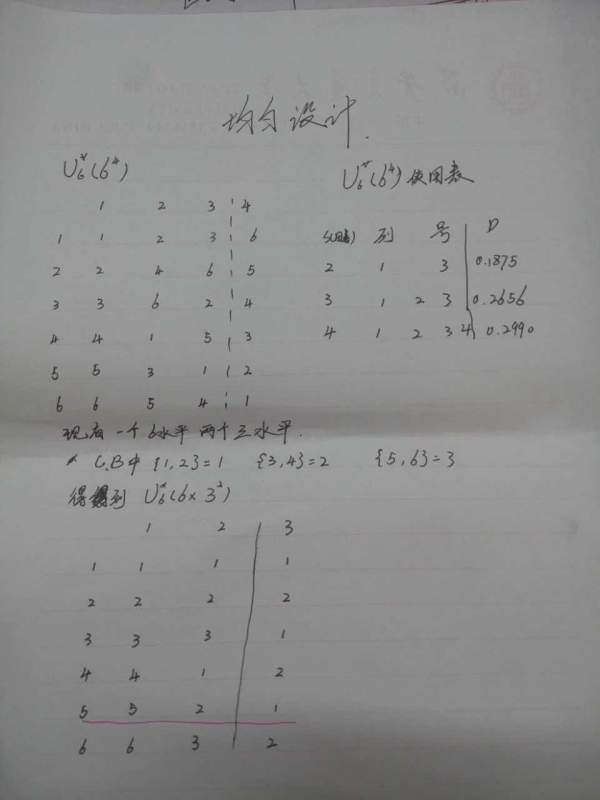 均匀设计.
U6*(6^4)
1 2 3 4
1 1 2 3 6
2 2 4 6 5
3 3 6 2 4
4 4 1 5 3
5 5 3 1 2
6 6 5 4 1
U6*(6^4) 使用表
列 号 D
2 1 3 0.1875
3 1 2 3 0.2656
4 1 2 3 4 0.2990
现有一个6水平 两个三水平.
C.B中 {1,2}=1 {3,4}=2 {5,6}=3
得到 U6*(6×3^2)
1 2 3
1 1 1 1
2 2 2 2
3 3 3 1
4 4 1 2
5 5 2 1
6 6 3 2